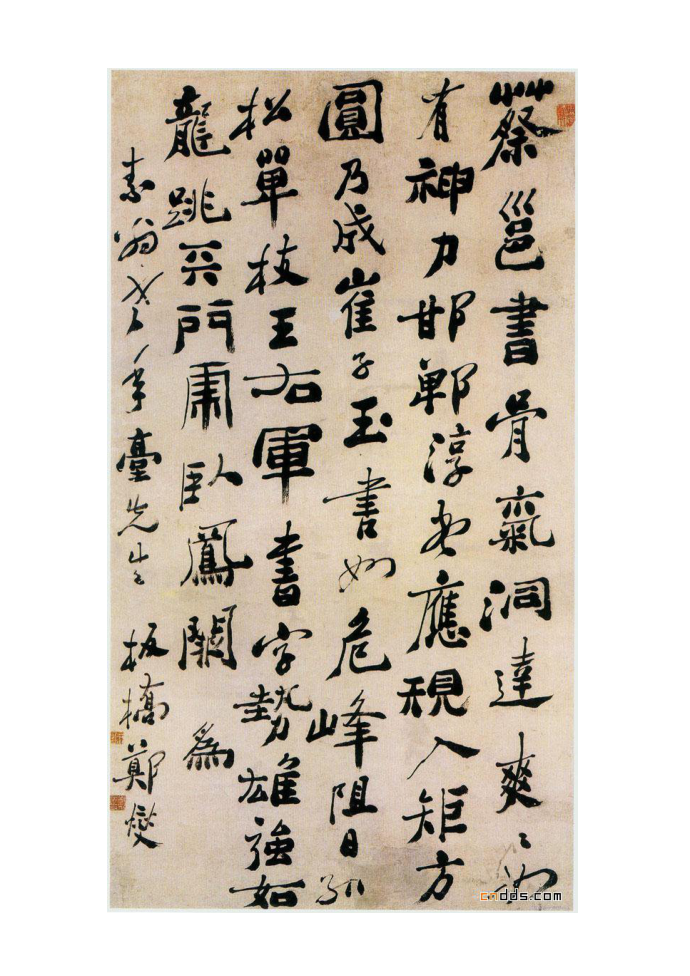 蔡邕書骨氣洞達爽爽如
有神力邯鄲淳書應規入矩方
圓乃成崔子玉書如危峰阻日孤
松單枝王右軍書字勢雄強如
龍跳天門虎臥鳳闕 為
素翁老年臺先生 板橋鄭燮
cndds.com